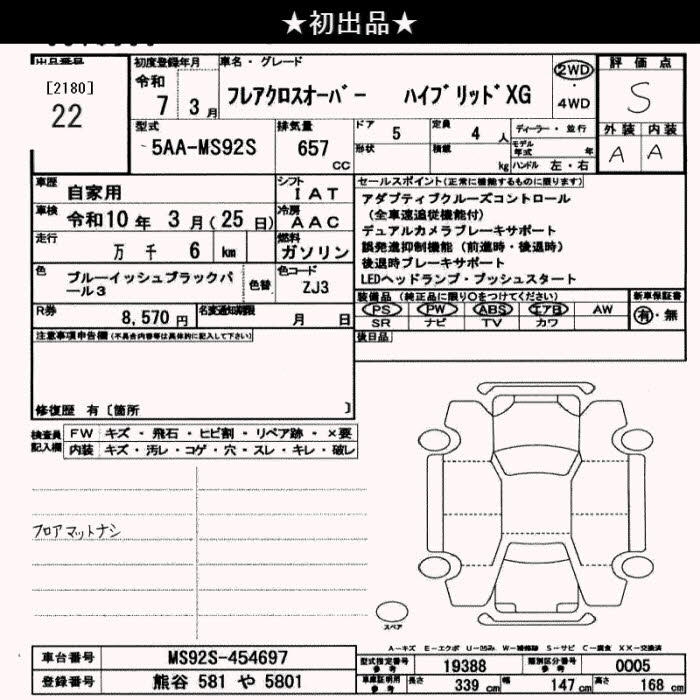 ★初出品★
出品番号
[2180]
22
初度登録年月
令和
7 3月
車名・グレード
フレアクロスオーバー ハイブリッドXG
2WD
・
4WD
評価点
S
外装 内装
A A
型式
5AA-MS92S
排気量
657
CC
ドア 5
形状
定員 4 人
積載 kg
ディーラー・並行
モデル年式 年
ハンドル 左・右
車歴 自家用
シフト IAT
車検 令和10年 3月(25日)
冷房 AAC
走行 万千 6 km
燃料 ガソリン
色 ブルーイッシュブラックパール3
色替
色コード ZJ3
R券 8,570円
名変通知期限 月 日
セールスポイント(正常に機能するものに限ります)
アダプティブクルーズコントロール
(全車速追従機能付)
デュアルカメラブレーキサポート
誤発進抑制機能(前進時・後退時)
後退時ブレーキサポート
LEDヘッドランプ・プッシュスタート
装備品(純正品に限り○をつけてください)
PS PW ABS エアB AW
SR ナビ TV カワ
新車保証書
有・無
後日品
注意事項申告欄(不具合内容等は具体的に記入して下さい)
修復歴 有〔箇所 〕
検査員記入欄
FW キズ・飛石・ヒビ割・リペア跡・×要
内装 キズ・汚レ・コゲ・穴・スレ・キレ・破レ
フロアマットナシ
スペア
A-キズ E-エクボ U-凹み W-補修跡 S-サビ C-腐食 XX-交換済
車台番号 MS92S-454697
登録番号 熊谷 581 や 5801
型式指定番号 参考 19388
類別区分番号 参考 0005
車庫証明用 参考 長さ 339 cm 幅 147 cm 高さ 168 cm